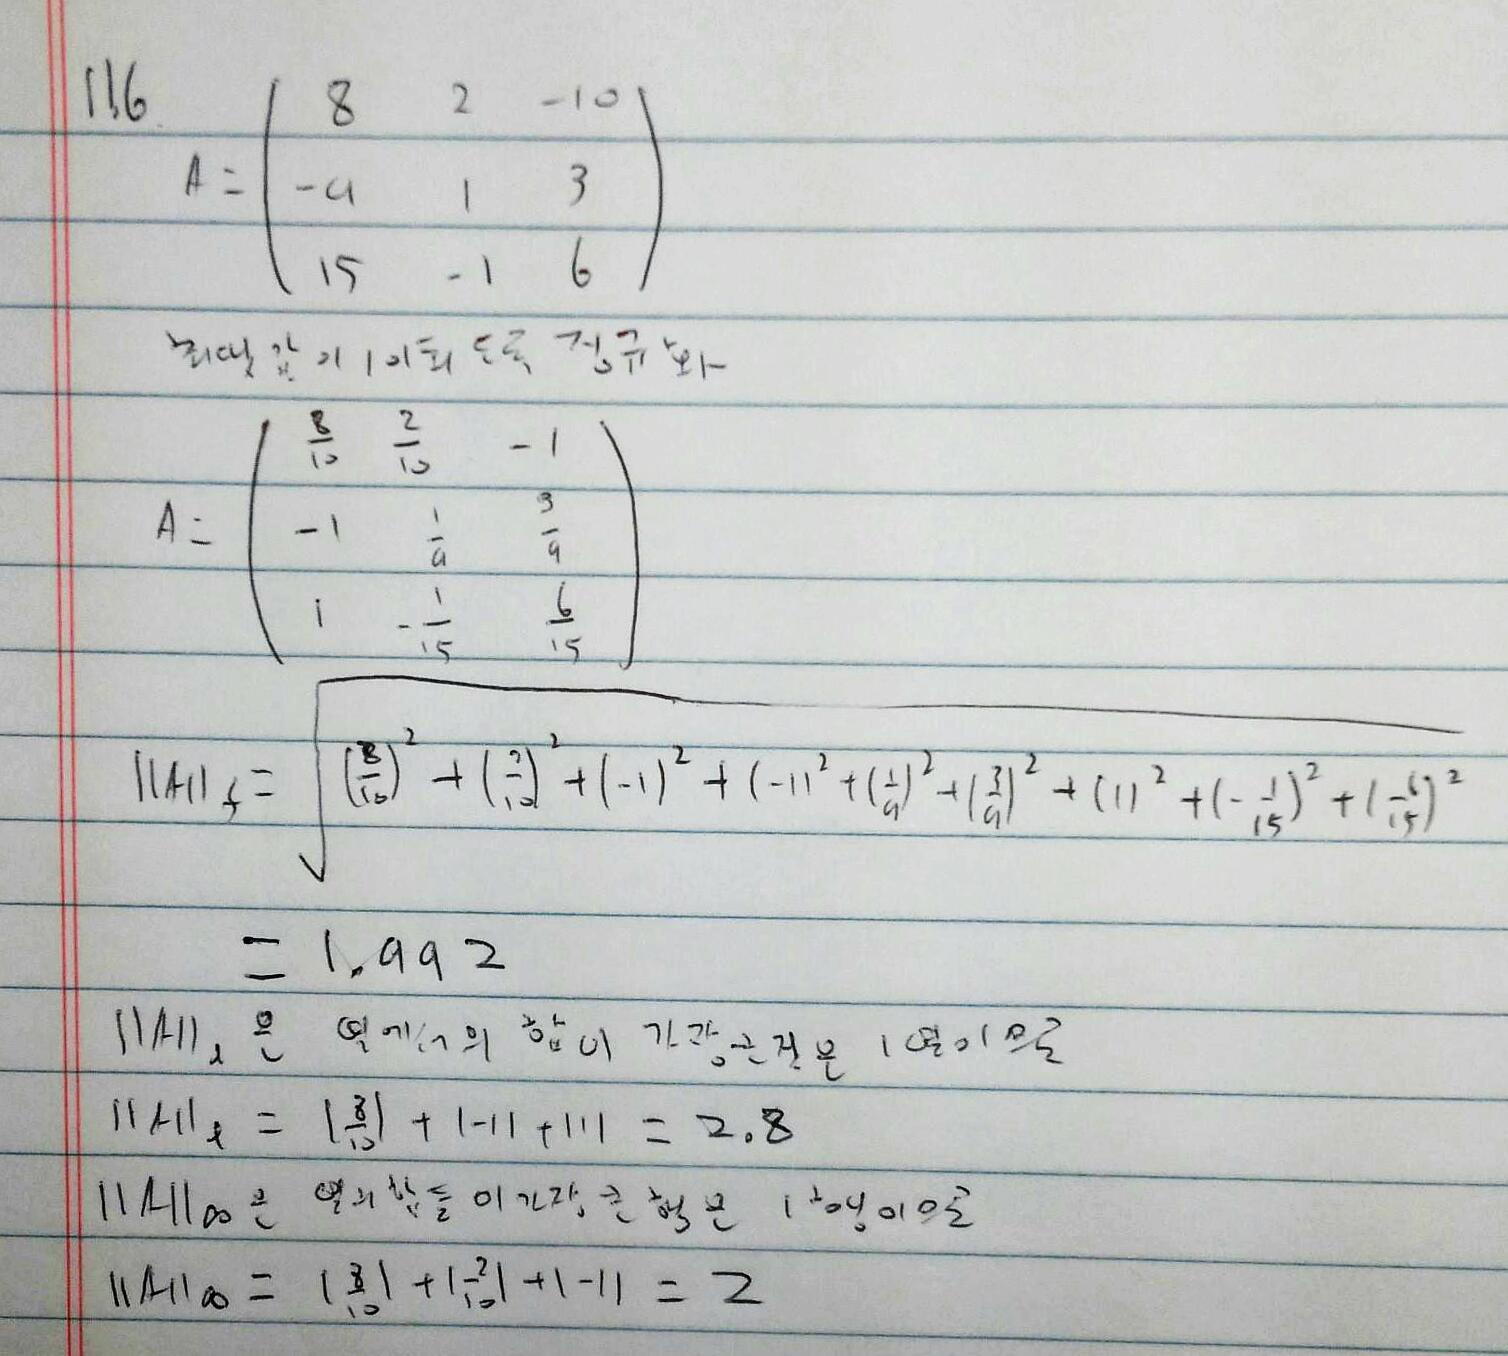 11.6
8 2 -10
A = -9 1 3
15 -1 6
최댓값이 1이 되도록 정규화
8/10 2/10 -1
A = -1 1/9 3/9
1 -1/15 6/15
||A||f = √((8/10)² + (2/10)² + (-1)² + (-1)² + (1/9)² + (3/9)² + (1)² + (-1/15)² + (6/15)²)
= 1.992
||A||₁은 열에서의 합이 가장 큰 것은 1열이므로
||A||₁ = |8/10| + |-1| + |1| = 2.8
||A||∞은 열의 합들이 가장 큰 행은 1행이므로
||A||∞ = |8/10| + |2/10| + |-1| = 2